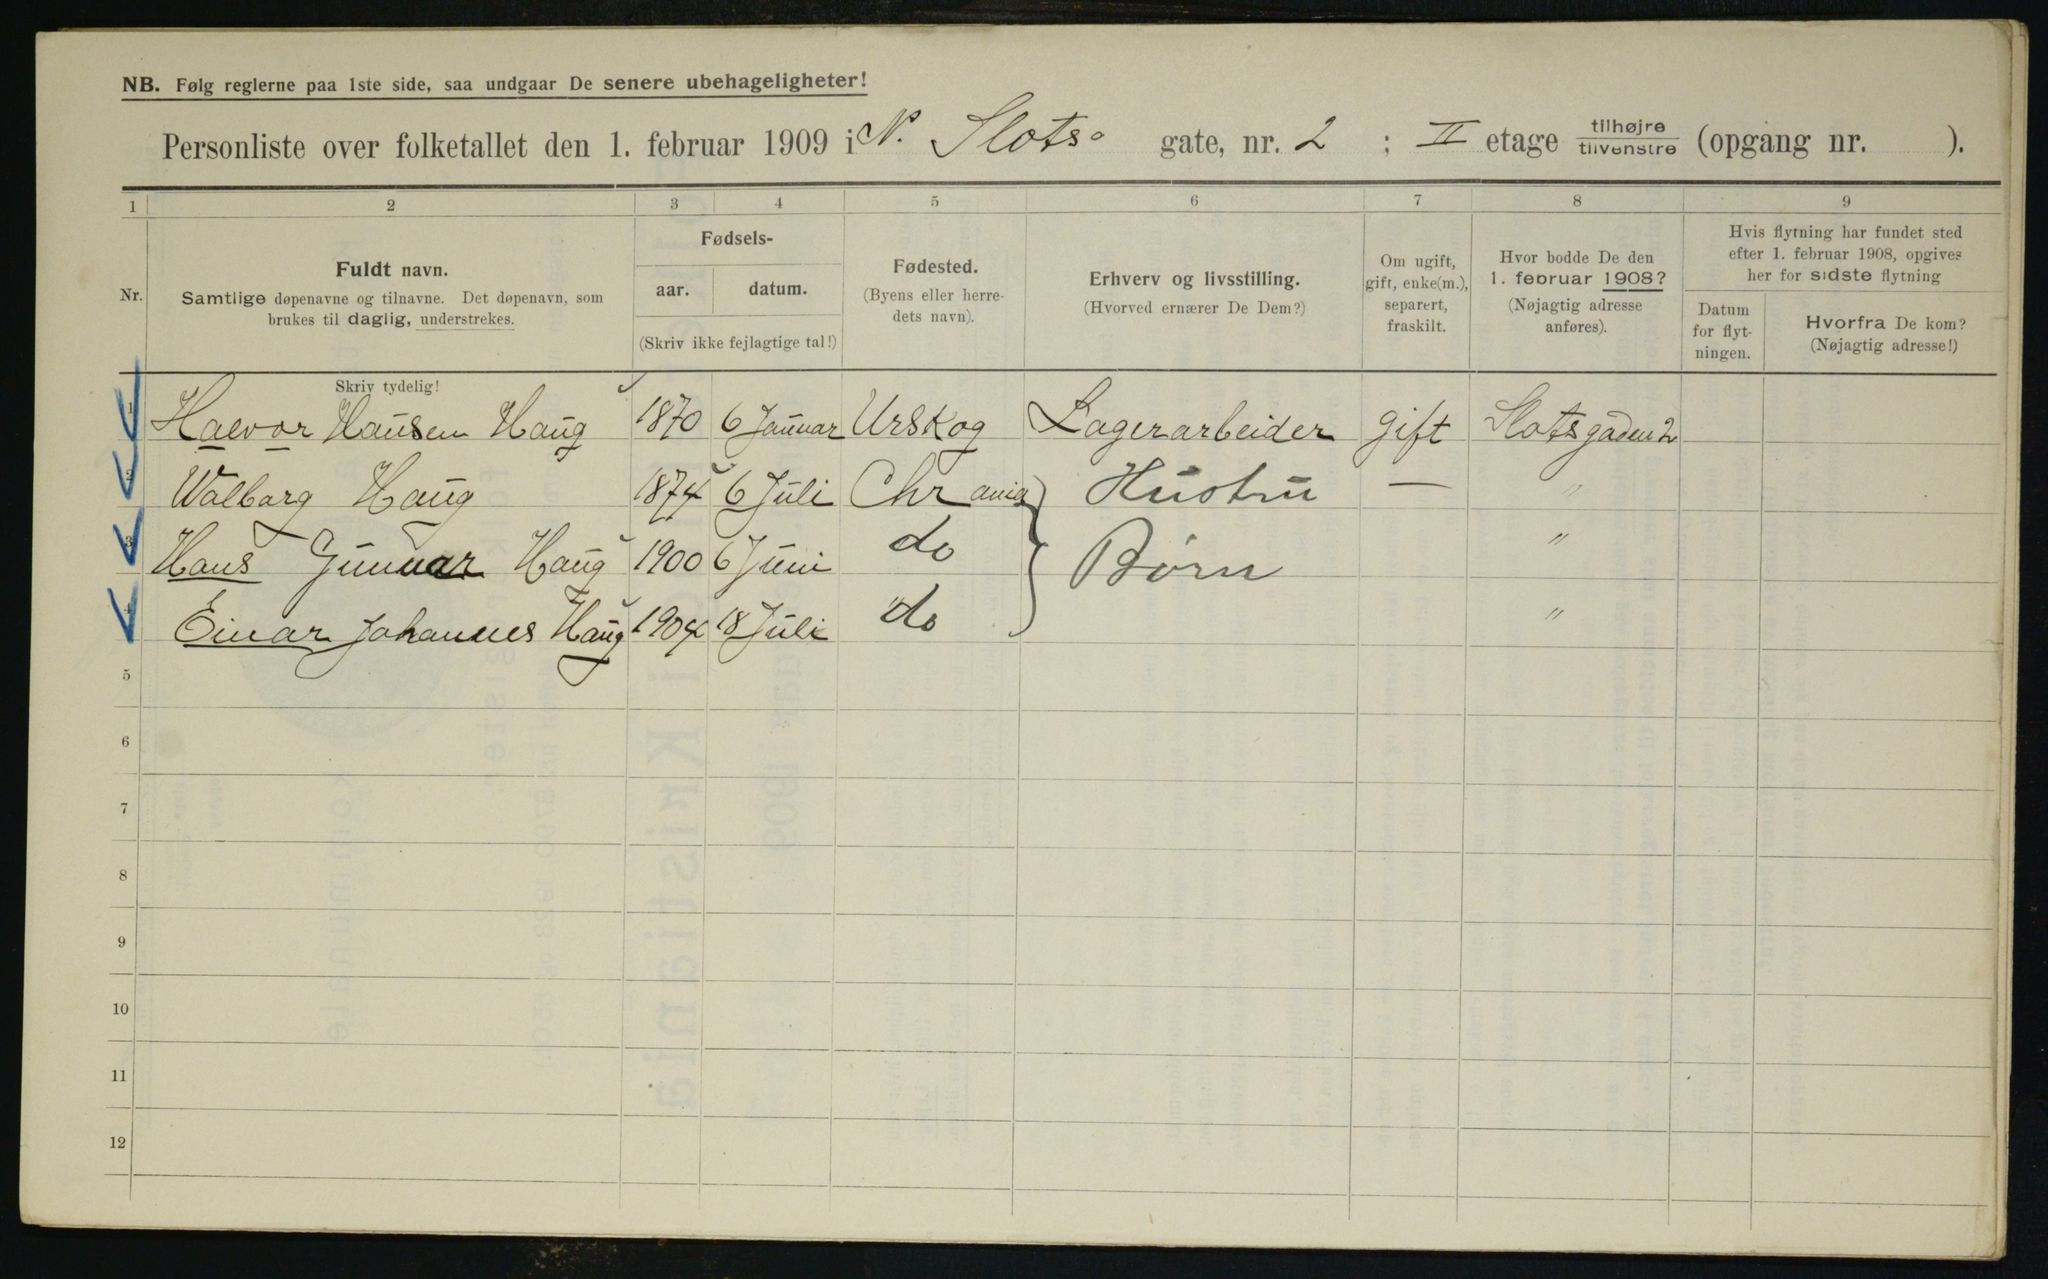 NB. Følg reglerne paa 1ste side, saa undgaar De senere ubehageligheter!
Personliste over folketallet den 1. februar 1909 i N. Slots- gate, nr. 2 ; II etage tilhøjre tilvenstre (opgang nr. ).
1 2 3 4 5 6 7 8 9
Nr.
Fuldt navn.
Samtlige døpenavne og tilnavne. Det døpenavn, som
brukes til daglig, understrekes.
Fødsels-
aar. datum.
(Skriv ikke fejlagtige tal!)
Fødested.
(Byens eller herre-
dets navn).
Erhverv og livsstilling.
(Hvorved ernærer De Dem?)
Om ugift,
gift, enke(m.),
separert,
fraskilt.
Hvor bodde De den
1. februar 1908?
(Nøjagtig adresse
anføres).
Hvis flytning har fundet sted
efter 1. februar 1908, opgives
her for sidste flytning
Datum
for flyt-
ningen.
Hvorfra De kom?
(Nøjagtig adresse!)
Skriv tydelig!
1 Halvor Hansen Haug 1870 6 Januar Urskog Lagerarbeider gift Slotsgaden 2
2 Walborg Haug 1874 6 Juli Chrania Hustru — "
3 Hans Gunnar Haug 1900 6 Juni do Børn "
4 Einar Johannes Haug 1904 18 Juli do "
5
6
7
8
9
10
11
12